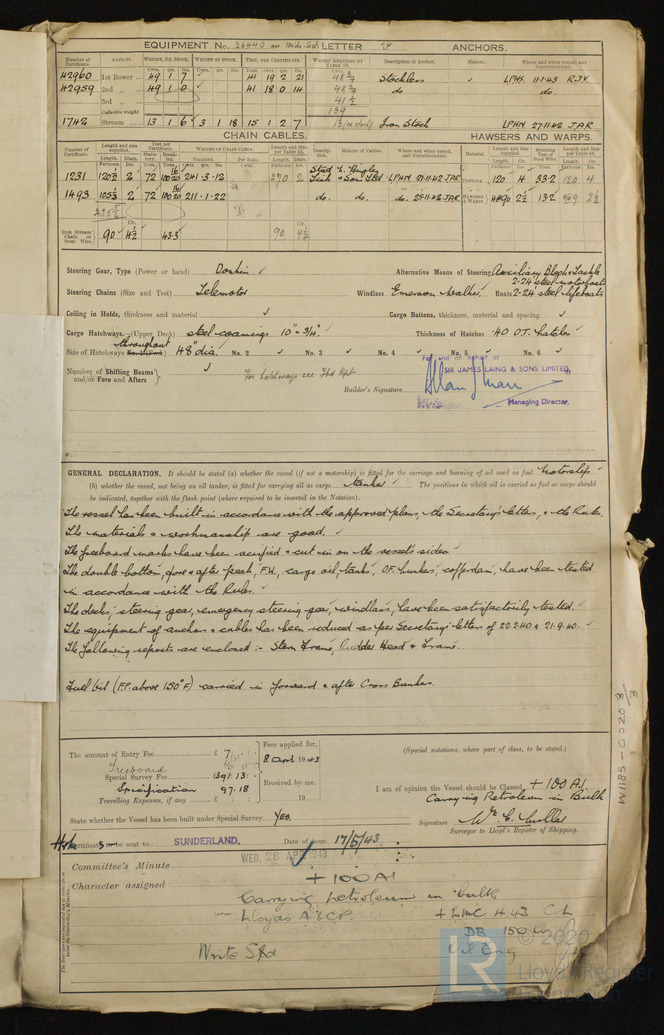 EQUIPMENT No. 26440 LETTER ANCHORS.
Number of Certificate. Anchors. WEIGHT, EX. STOCK. WEIGHT OF STOCK. TEST, PER CERTIFICATE. WEIGHT REQUIRED BY TABLE 53. Description of Anchor. Makers. Where and when tested, and Superintendent.
42960 1st Bower 49 1 7 41 19 2 21 48 Stockless LPHS 11.1.43 RJV
42959 2nd „ 49 1 0 41 18 0 14 48 do do.
3rd „ 41½
Collective weight 139
1742 Stream 13 1 6 3 1 18 15 1 2 7 13 Iron Stock LPHN 27.11.42 JAR
CHAIN CABLES. HAWSERS AND WARPS.
Number of Certificate. Length and size supplied. Test per Certificate. WEIGHT OF CHAIN CABLE. Length and size per Table 53. Description. Makers of Cables. Where and when tested, and Superintendent. Material. Length and size supplied. Breaking Test of Steel Wire. Length and size per Table 53.
1231 120½ 2 72 241.3.12 270 2 Stud Link N. Hingley & Son Ltd LPHN 21.11.42 JAR 120 4 33.2 120 4
1493 105½ 2 72 211.1.22 do. do. do. 25.11.42 JAR 90 2½ 13.2
Iron Stream Chain or Steel Wire 90 4½ 43.3 90 4½
Steering Gear, Type (Power or hand) Donkin Alternative Means of Steering Auxiliary Block & Tackle
2-24' steel motorboats
Steering Chains (Size and Test) Telemotor Windlass Emerson Walker. Boats 2-24' steel lifeboats
Ceiling in Holds, thickness and material Cargo Battens, thickness, material and spacing
Cargo Hatchways. (Upper Deck) steel coamings 10"-3/4" Thickness of Hatches .40 O.T. hatches
throughout
Size of Hatchways 48" dia. No. 2 No. 3 No. 4 No. 5 No. 6
For and on behalf of
SIR JAMES LAING & SONS LIMITED,
Number of Shifting Beams and/or Fore and Afters For hatchways see Fbd Rpt
Builder's Signature
Managing Director.
GENERAL DECLARATION. It should be stated (a) whether the vessel (if not a motorship) is fitted for the carriage and burning of oil used as fuel Motorship
(b) whether the vessel, not being an oil tanker, is fitted for carrying oil as cargo tanker The positions in which oil is carried as fuel or cargo should
be indicated, together with the flash point (where required to be inserted in the Notation).
The vessel has been built in accordance with the approved plans, the Secretary's letters, & the Rules.
The materials & workmanship are good.
The freeboard marks have been verified & cut in on the vessel's sides
The double bottom, fore & after peak, F.W., cargo oil, tanks, O.F. bunkers, cofferdam, have been tested
in accordance with the Rules.
The decks, steering gear, emergency steering gear, windlass, have been satisfactorily tested.
The equipment of anchors & cables has been reduced as per Secretary's letters of 22.2.40 & 21.9.40.
The following reports are enclosed :- Stern Frame, Rudder Head & Frame.
Fuel oil (F.P. above 150°F) carried in forward & after Cross Bunkers.
W1185-0020 3/3
The amount of Entry Fee £ 7
Freeboard
Special Survey Fee 1391.13.
Specification 97.18
Travelling Expenses, if any £
Fees applied for.
8 April 1943
Received by me.
19
(Special notations, where part of class, to be stated.)
I am of opinion the Vessel should be Classed + 100 A1.
Carrying Petroleum in Bulk
State whether the Vessel has been built under Special Survey Yes.
Signature
Surveyor to Lloyd's Register of Shipping.
Certificate to be sent to: SUNDERLAND. Date of issue 17/5/43.
WED. 28 APR 1943
Committee's Minute
Character assigned
+ 100 A1
Carrying petroleum in bulk
Lloyds A & CP. + LMC 4.43 C L
DB 150 lb
Oil Eng
Write Sld
© 2020
LR Lloyd's Register
Foundation